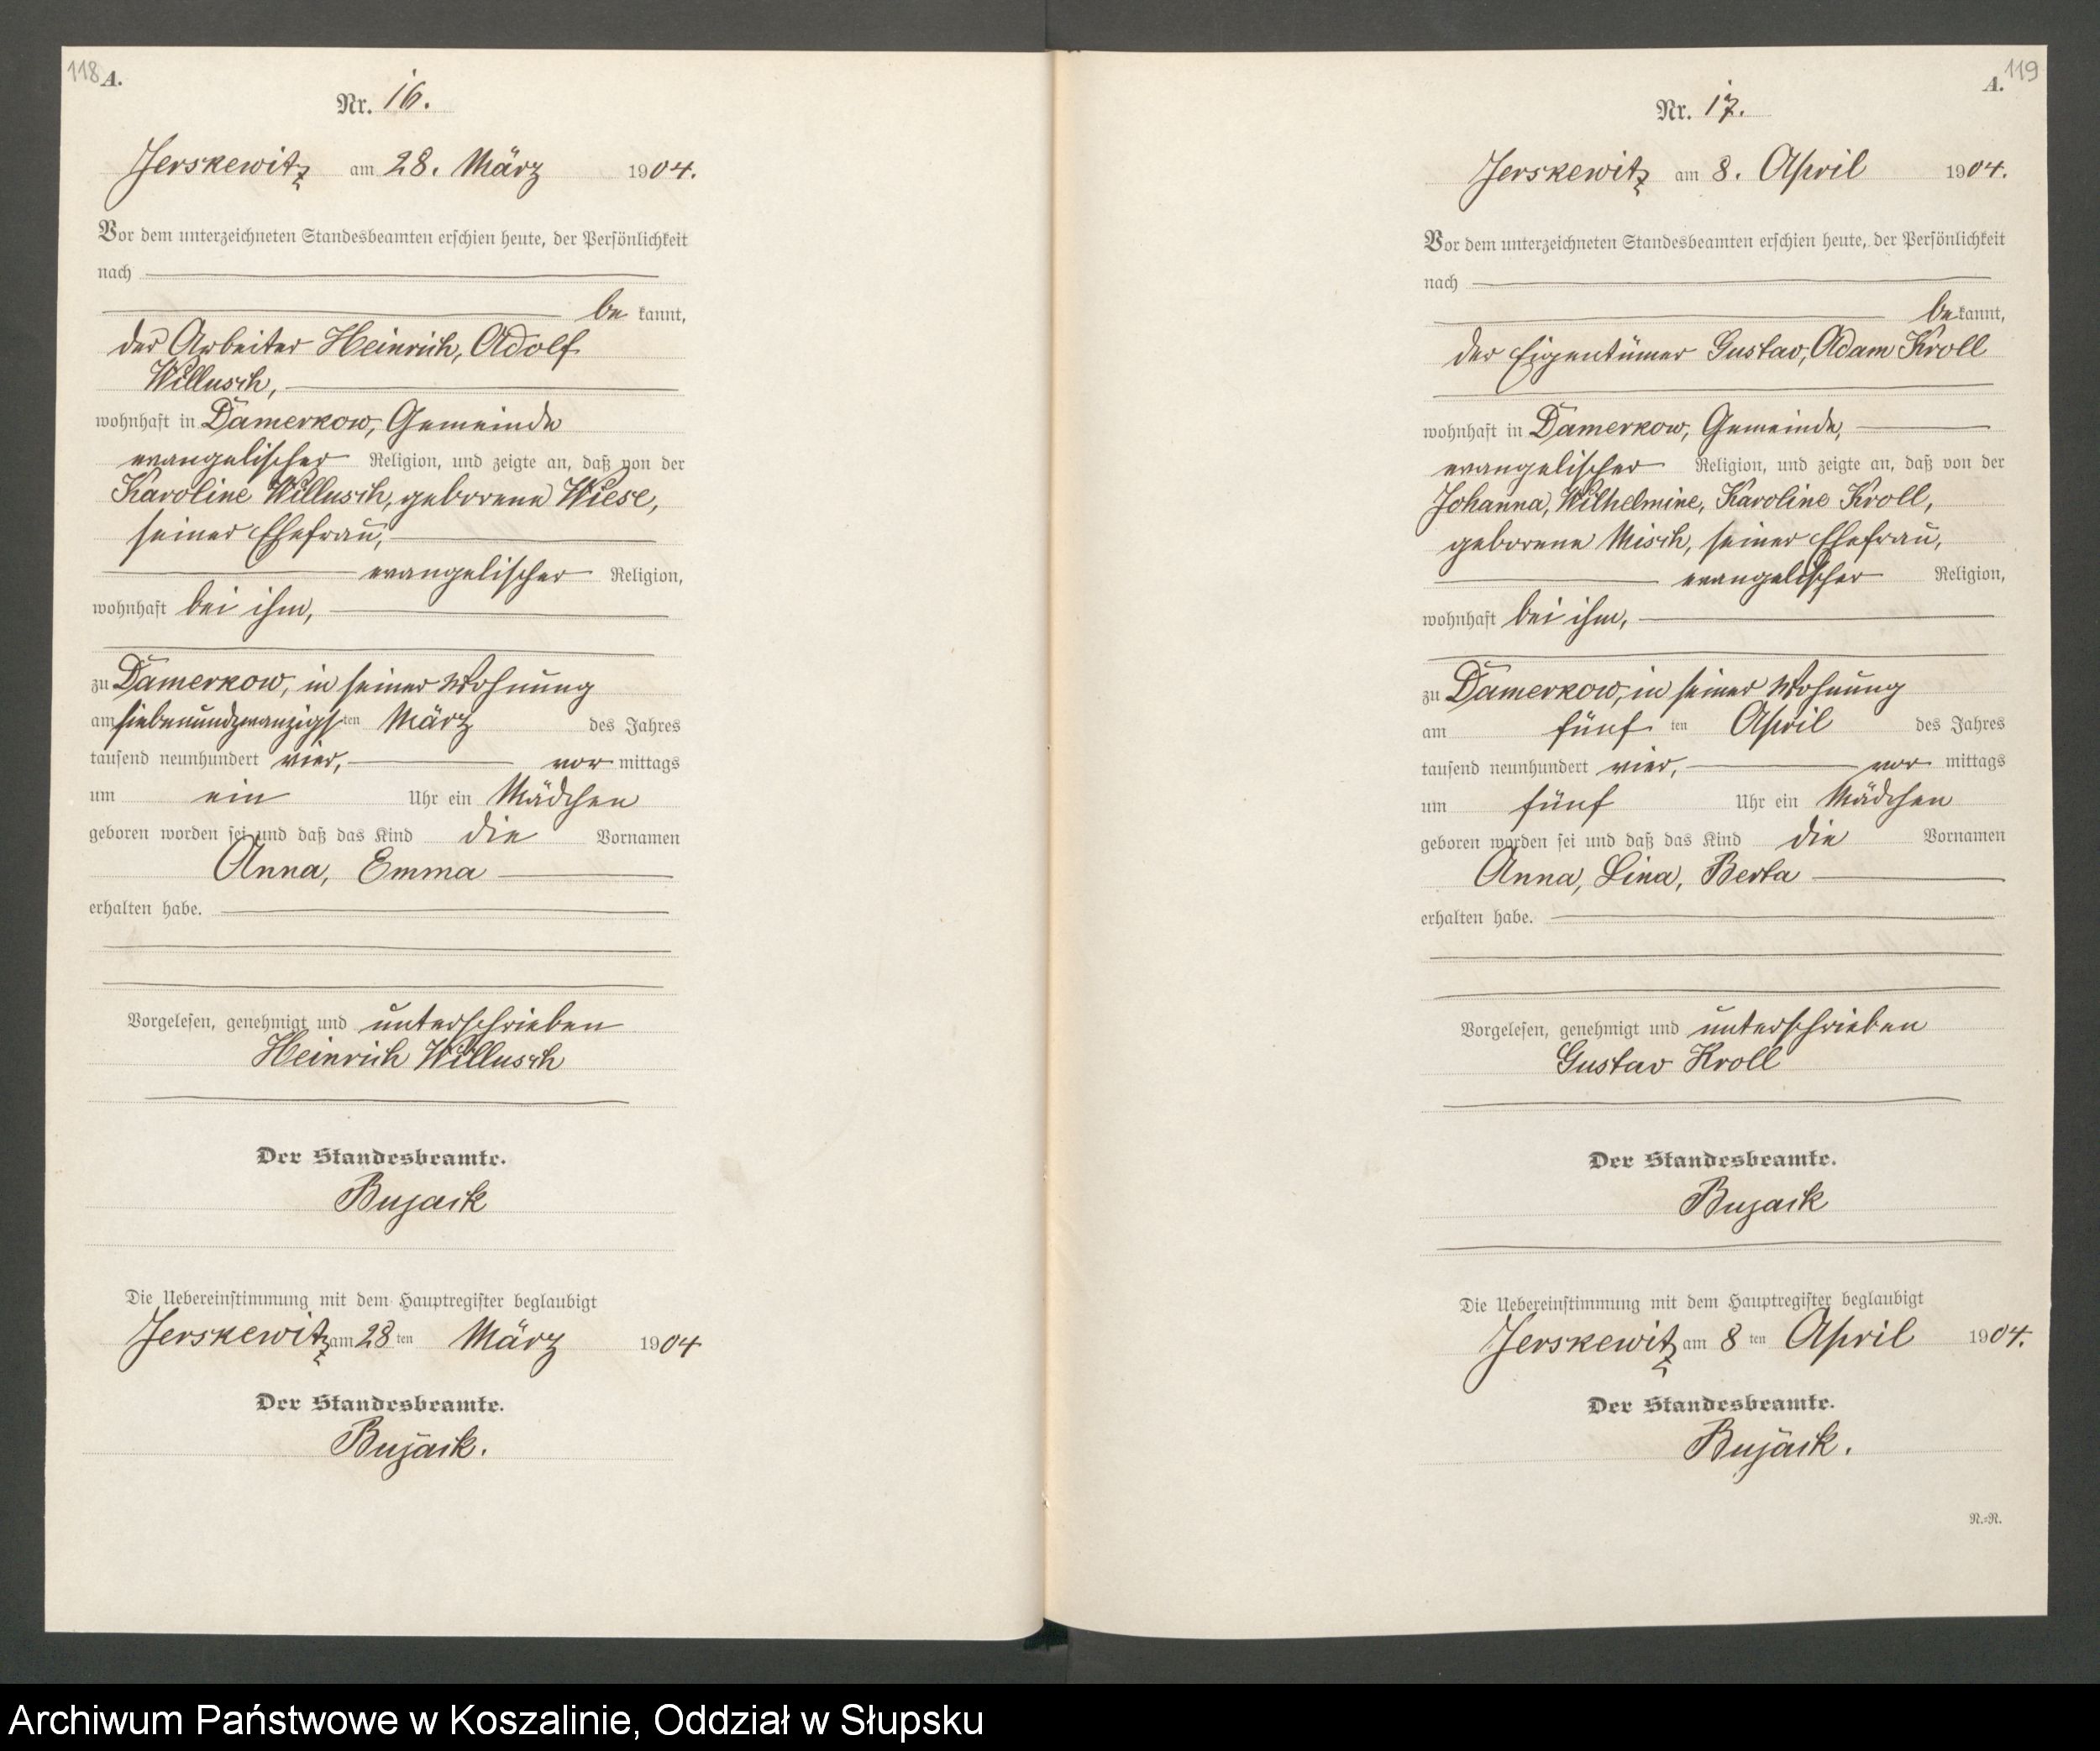 118 A.
Nr. 16.
Jerskewitz am 28. März 1904.
Vor dem unterzeichneten Standesbeamten erschien heute, der Persönlichkeit
nach
be kannt,
der Arbeiter Heinrich, Adolf
Willusch,
wohnhaft in Damerkow, Gemeinde
evangelischer Religion, und zeigte an, daß von der
Karoline Willusch, geborene Wiese,
seiner Ehefrau,
evangelischer Religion,
wohnhaft bei ihm,
zu Damerkow, in seiner Wohnung
am siebenundzwanzigsten März des Jahres
tausend neunhundert vier, vor mittags
um ein Uhr ein Mädchen
geboren worden sei und daß das Kind die Vornamen
Anna, Emma
erhalten habe.
Vorgelesen, genehmigt und unterschrieben
Heinrich Willusch
Der Standesbeamte.
Bujack
Die Uebereinstimmung mit dem Hauptregister beglaubigt
Jerskewitz am 28 ten März 1904
Der Standesbeamte.
Bujack.
A. 119
Nr. 17.
Jerskewitz am 8. April 1904.
Vor dem unterzeichneten Standesbeamten erschien heute, der Persönlichkeit
nach
be kannt,
der Eigentümer Gustav, Adam Kroll
wohnhaft in Damerkow, Gemeinde,
evangelischer Religion, und zeigte an, daß von der
Johanna, Wilhelmine, Karoline Kroll,
geborene Misch, seiner Ehefrau,
evangelischer Religion,
wohnhaft bei ihm,
zu Damerkow, in seiner Wohnung
am fünf ten April des Jahres
tausend neunhundert vier, vor mittags
um fünf Uhr ein Mädchen
geboren worden sei und daß das Kind die Vornamen
Anna, Lina, Berta
erhalten habe.
Vorgelesen, genehmigt und unterschrieben
Gustav Kroll
Der Standesbeamte.
Bujack
Die Uebereinstimmung mit dem Hauptregister beglaubigt
Jerskewitz am 8 ten April 1904.
Der Standesbeamte.
Bujack.
N.=R.
Archiwum Państwowe w Koszalinie, Oddział w Słupsku